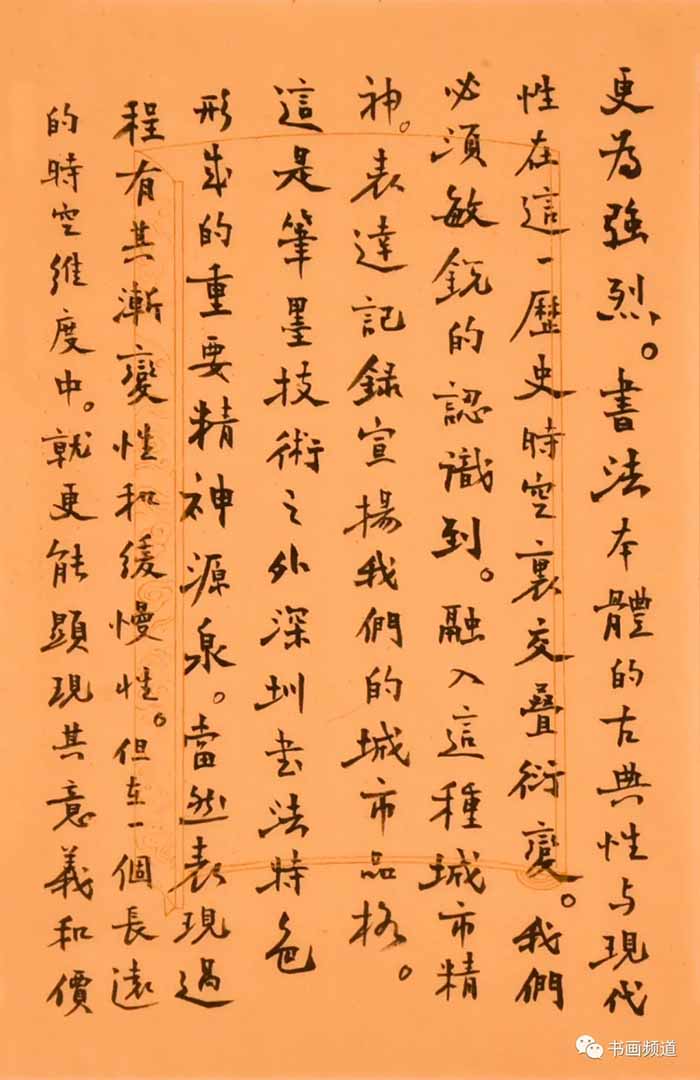 更為強烈。書法本體的古典性与現代
性在這一歷史時空裏交疊衍變。我們
必須敏銳的認識到。融入這種城市精
神。表達記録宣揚我們的城市品格。
這是筆墨技術之外深圳书法特色
形成的重要精神源泉。當然表現過
程有其漸變性和緩慢性。但在一個長遠
的時空維度中。就更能顯現其意義和價
书画频道